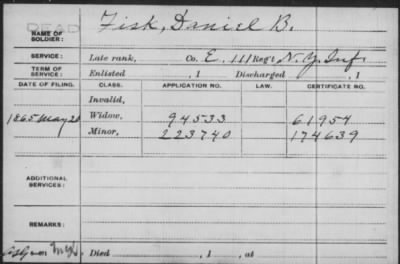 DEAD
NAME OF SOLDIER: Fisk, Daniel B.
SERVICE: Late rank, Co. E, 111 Reg't N.Y. Inf.
TERM OF SERVICE: Enlisted , 1 Discharged , 1
DATE OF FILING. CLASS. APPLICATION NO. LAW. CERTIFICATE NO.
Invalid,
1865 May 20 Widow, 94533 61954
Minor, 223740 174639
ADDITIONAL SERVICES:
REMARKS:
Died , 1 , at